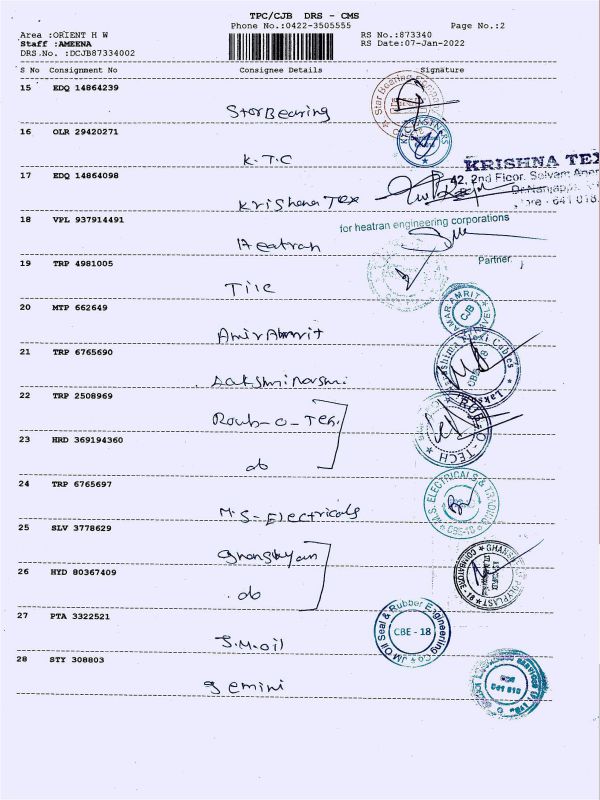 TPC/CJB DRS - CMS
Phone No.:0422-3505555 Page No.:2
Area :ORIENT H W RS No.:873340
Staff :AMEENA RS Date:07-Jan-2022
DRS.No. :DCJB87334002
S No Consignment No Consignee Details Signature
15 EDQ 14864239
Star Bearing
16 OLR 29420271
K.T.C
KRISHNA TEX
17 EDQ 14864098
42, 2nd Floor, Selvam
Krishna Tex
641 018.
18 VPL 937914491
for heatran engineering corporations
Heatran
Partner.
19 TRP 4981005
20 MTP 662649
AMAR AMRIT
CJB
21 TRP 6765690
22 TRP 2508969
Roub-o-Teh.
23 HRD 369194360
do
24 TRP 6765697
M.S. ELECTRICALS & TRADING
CBE-18
M.S-Electricals
25 SLV 3778629
26 HYD 80367409
do
27 PTA 3322521
JM Oil Seal & Rubber Engineering Co
CBE - 18
J.M.oil
28 STY 308803
Gemini
641 018